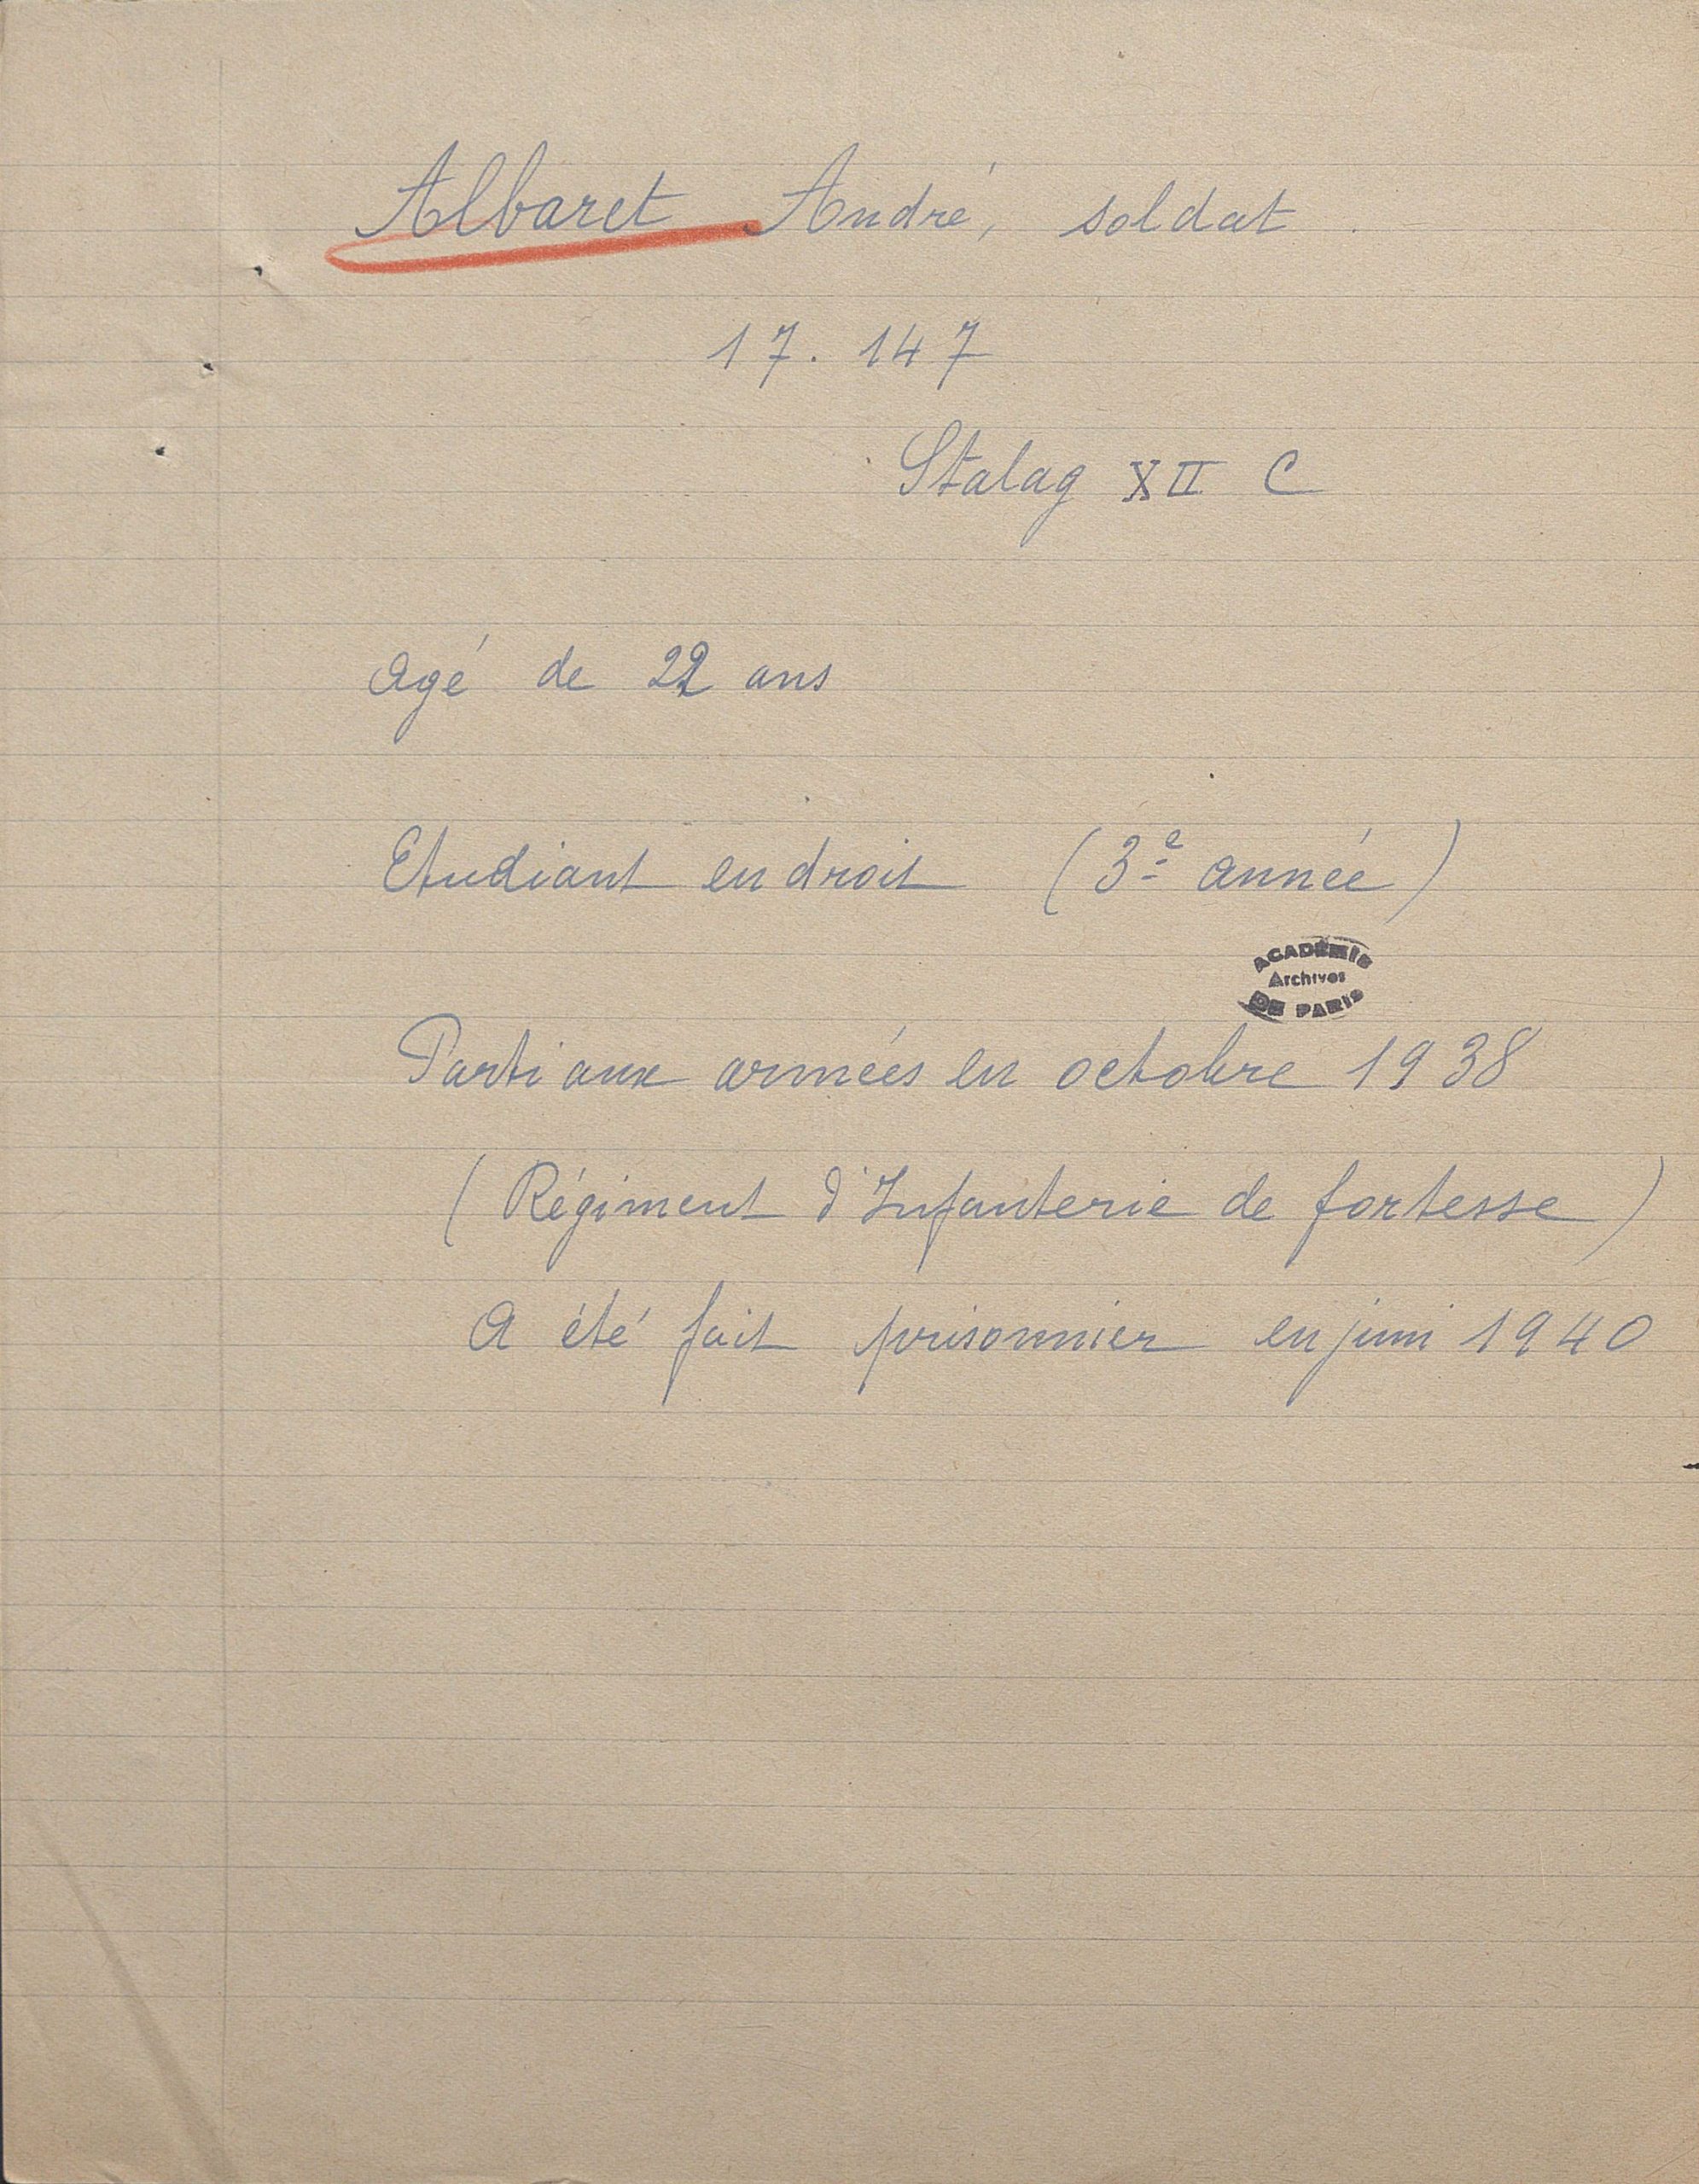 Albaret André, soldat.
17.147
Stalag XII C
agé de 22 ans
Etudiant en droit (3e année)
ACADÉMIE
Archives
DE PARIS
Parti aux armées en octobre 1938
(Régiment d'Infanterie de fortesse)
A été fait prisonnier en juin 1940